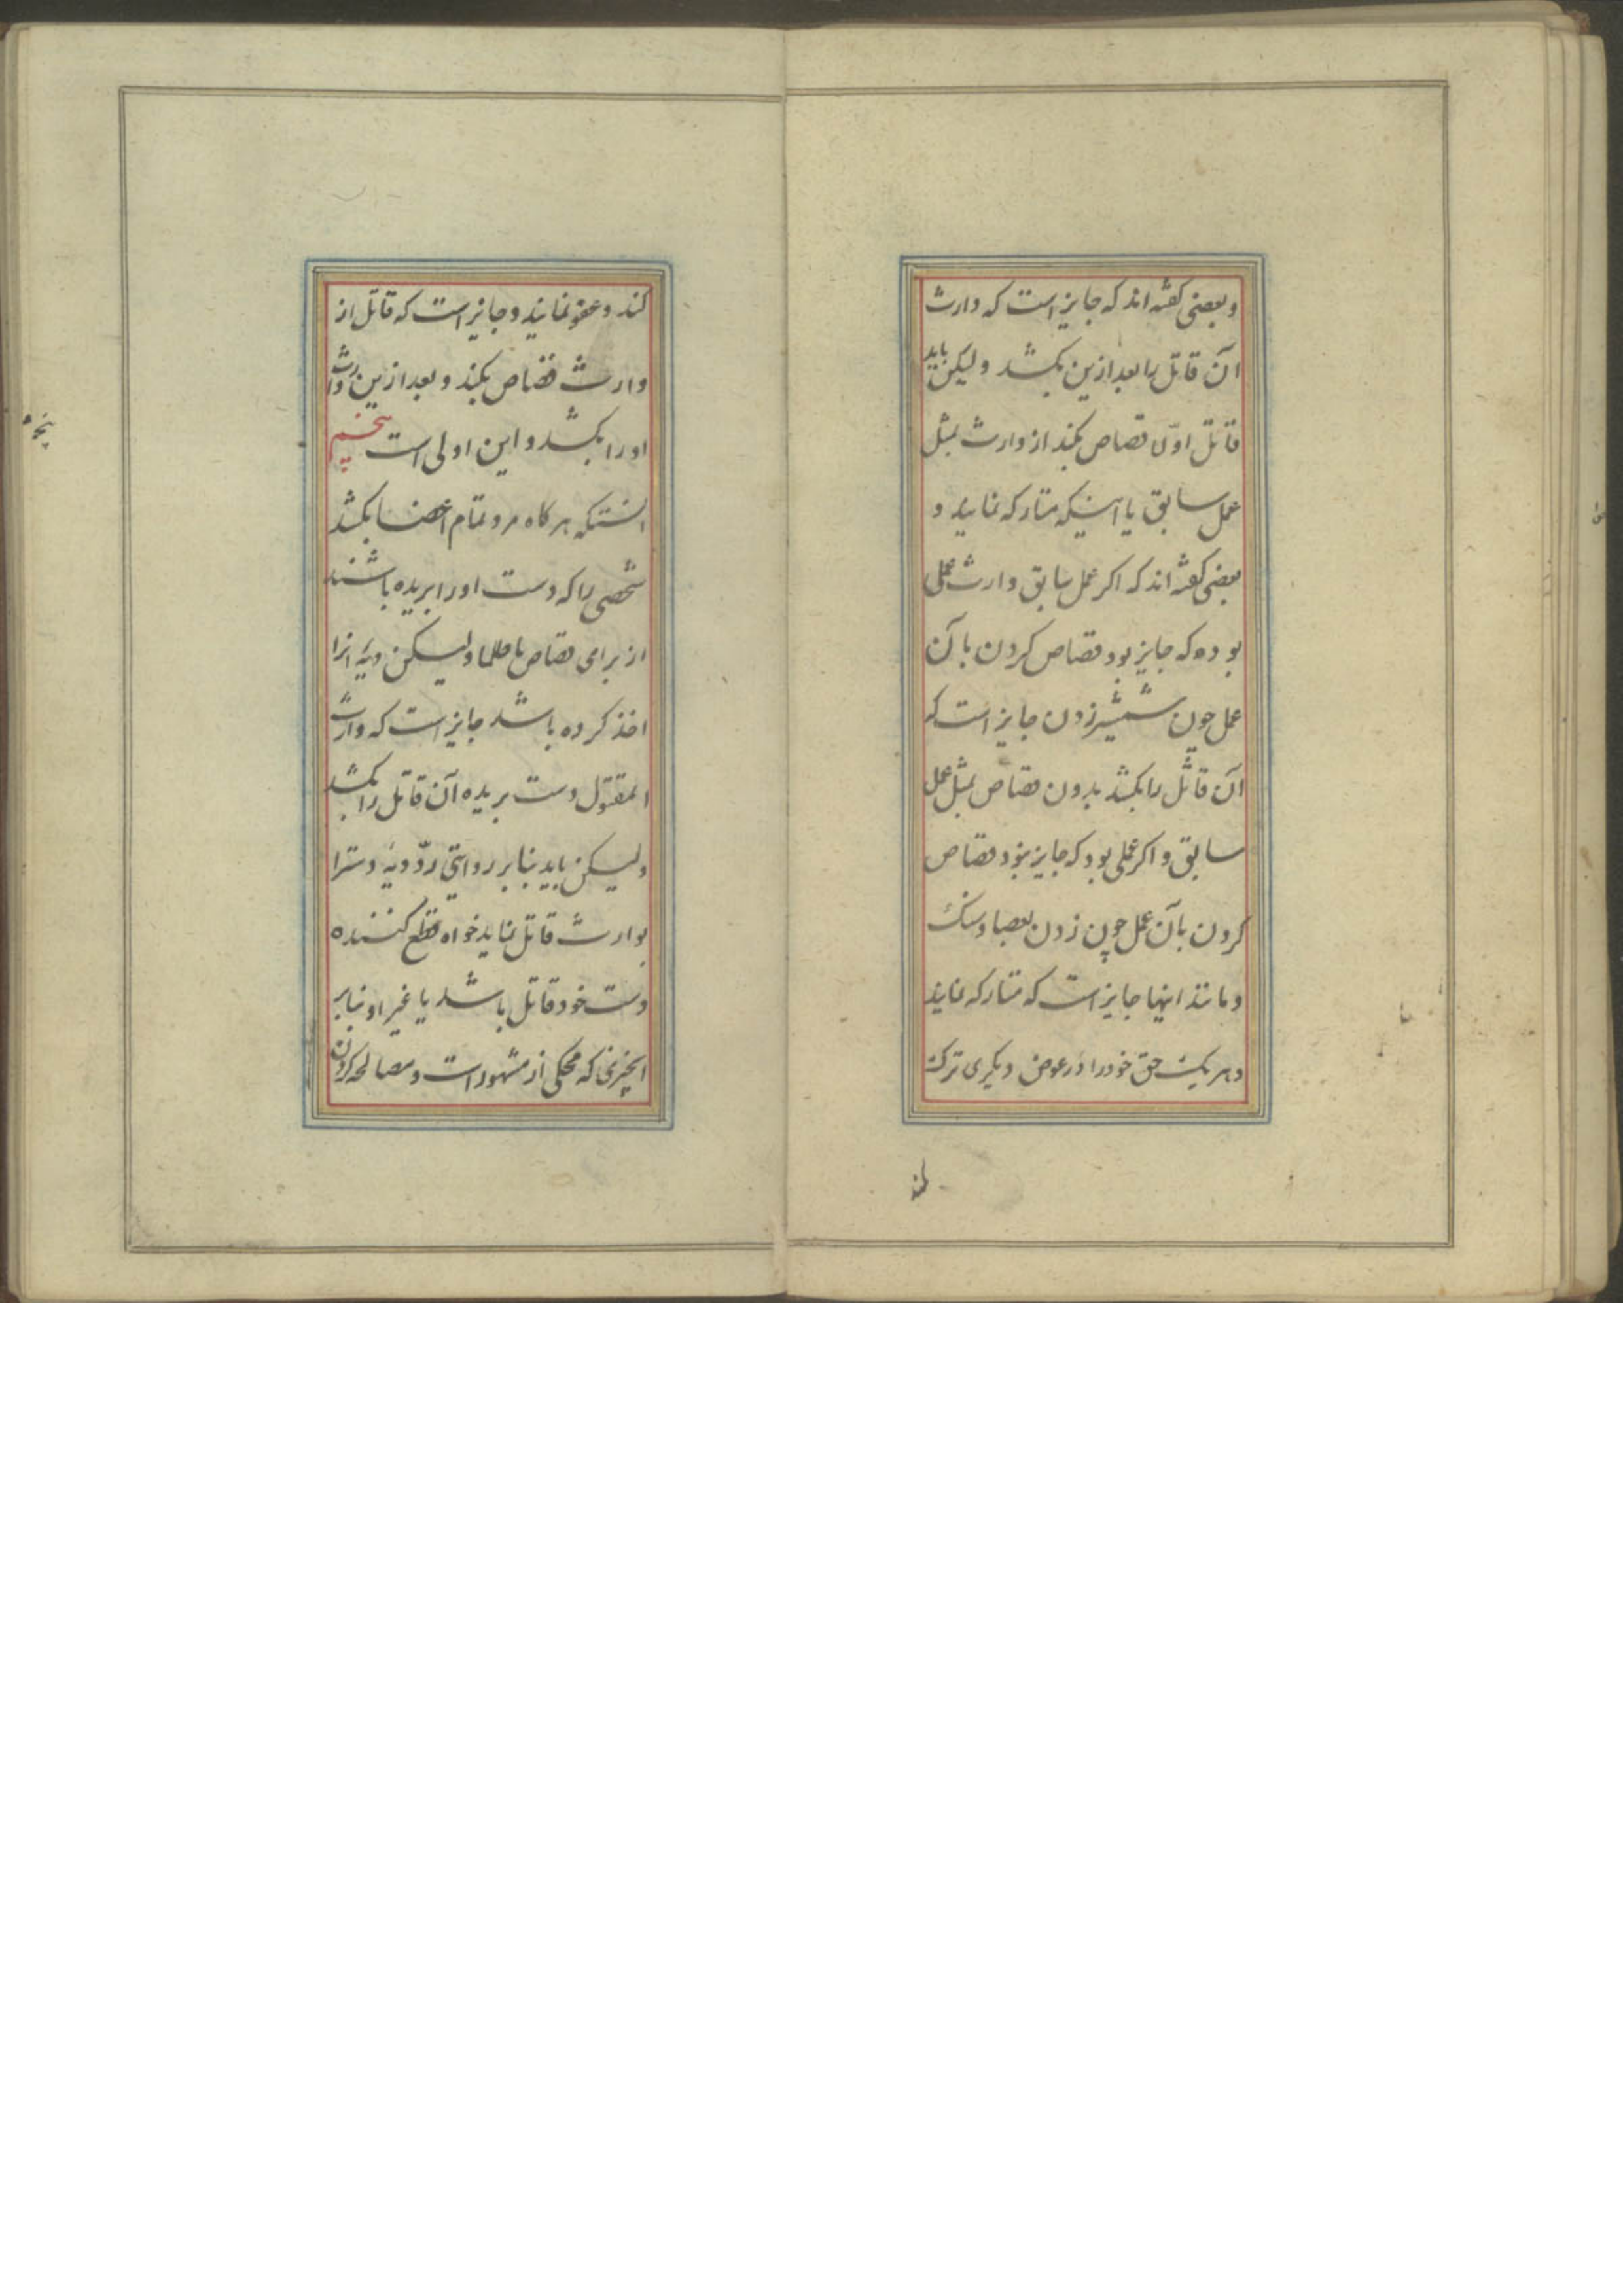 و بعضی کفته اند که جایز است که وارث
آن قاتل را بعد ازین بکشد ولیکن باید
قاتل اوّل قصاص بکند از وارث بمثل
عمل سابق یا اینکه متارکه نمایند و
بعضی کفته اند که اکر عمل سابق وارث عملی
بوده که جایز بود قصاص کردن بآن
عمل چون شمشیر زدن جایز است که
آن قاتل را بکشد بدون قصاص بمثل عمل
سابق و اکر عملی بود که جایز نبود قصاص
کردن بآن عمل چون زدن بعصا و سنک
و مانند اینها جایز است که متارکه نمایند
و هر یک حق خود را در عوض دیکری ترک
کند
کند و عفو نمایند و جایز است که قاتل از
وارث قصاص بکند و بعد ازین وارث
اورا بکشد و این اولی است پنجم
انستکه هر کاه مرد تمام اعضا بکشد
شخصی را که دست اورا بریده باشند
از برای قصاص یا ظلما ولیکن دیه انرا
اخذ کرده باشد جایز است که وارث
المقتول دست بریده آن قاتل را بکشد
ولیکن باید بنابر روایتی ردّ دیه دسترا
بوارث قاتل نماید خواه قطع کننده
دست خود قاتل باشد یا غیر او بنابر
انچیزی که محکی از مشهور است و مصالحه کردن
پنجم